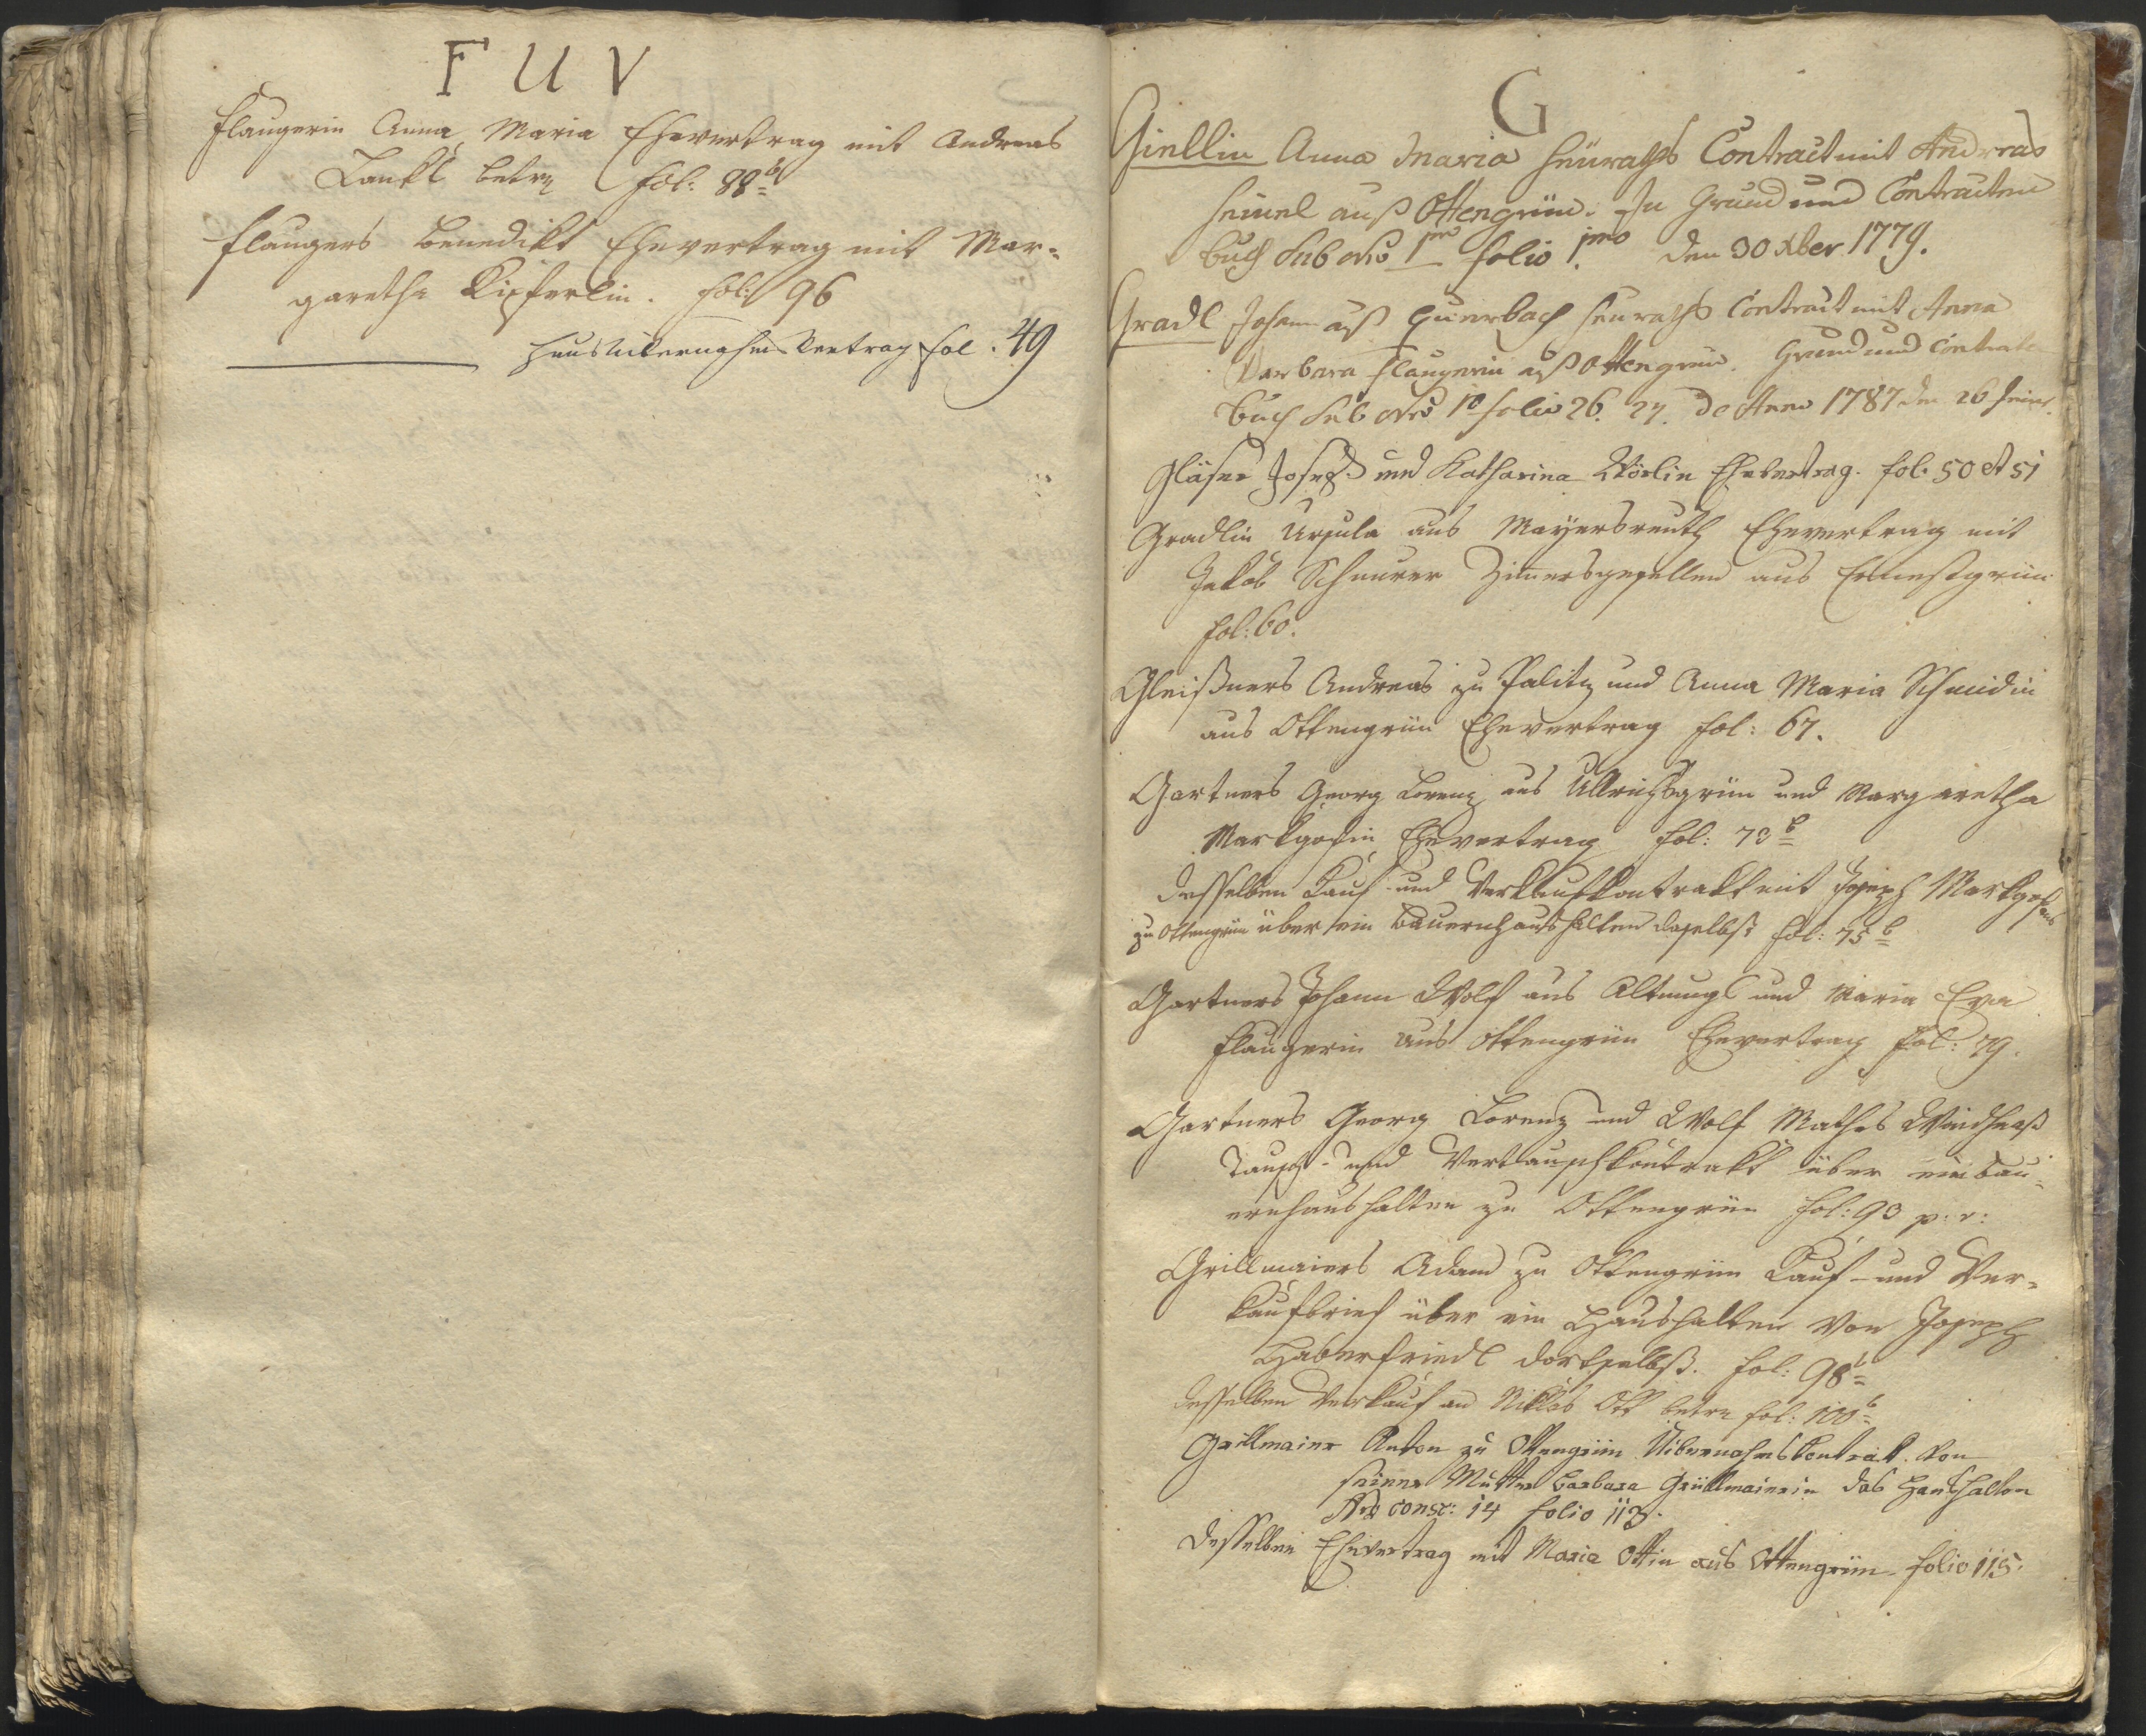 F U V
Flaugerin Anna Maria Ehevertrag mit Andreas
Lankl betr. fol: 88b
Flaugers Benedikt Ehevertrag mit Mar-
garetha Kipferlin. fol: 96
Hausübernahmsvertrag fol. 49
G
Giellin Anna Maria Heüraths Contract mit Andreas
Heinel auß Ottengrün. In Grund und Contracten
buch sub Nro 1mo folio 1mo den 30 Xber 1779.
Gradl Johann auß Querbach Heuraths Contract mit Anna
Barbara Flaugerin auß Ottengrün. Grund und Contrate
buch sub Nro 1o folio 26. 27. de Anno 1787 den 26
Gläser Joseph und Katharina Wörlin Ehevertrag. fol. 50 et 51
Gradlin Ursula aus Mayersreuth Ehevertrag mit
Jakob Scheurer Zimmersgesellen aus Ernestgrün
fol: 60.
Gleißners Andreas zu Palitz und Anna Maria Schmidin
aus Ottengrün Ehevertrag fol: 67.
Gartners Georg Lorenz aus Ullrichsgrün und Margaretha
Markgrafin Ehevertrag fol: 73b
desselben Kauf- und Verkaufkontrakt mit Joseph Markgrafens
zu Ottengrün über ein Bauernhaushalten daselbst fol: 75b
Gartners Johann Wolf aus Altmugl und Maria Eva
Flaugerin aus Ottengrün Ehevertrag fol: 79.
Gartners Georg Lorenz und Wolf Mathes Windhess
Tausch- und Vertauschkontrakt über ein Bau-
ernhaushalten zu Ottengrün fol: 93 p: v:
Grillmaiers Adam zu Ottengrün Kauf- und Ver-
kaufbrief über ein Haushalten von Joseph
Haberfriedl dortselbst. fol: 98b
desselben Verkauf an Niklas Ott betr. fol: 100b
Grillmaier Anton zu Ottengrün Uibernahmskontrakt von
seiner Mutter Barbara Grüllmaierin das Haushalten
Nro consc: 14 folio 113.
desselben Ehevertrag mit Maria Ottin aus Ottengrün folio 115.